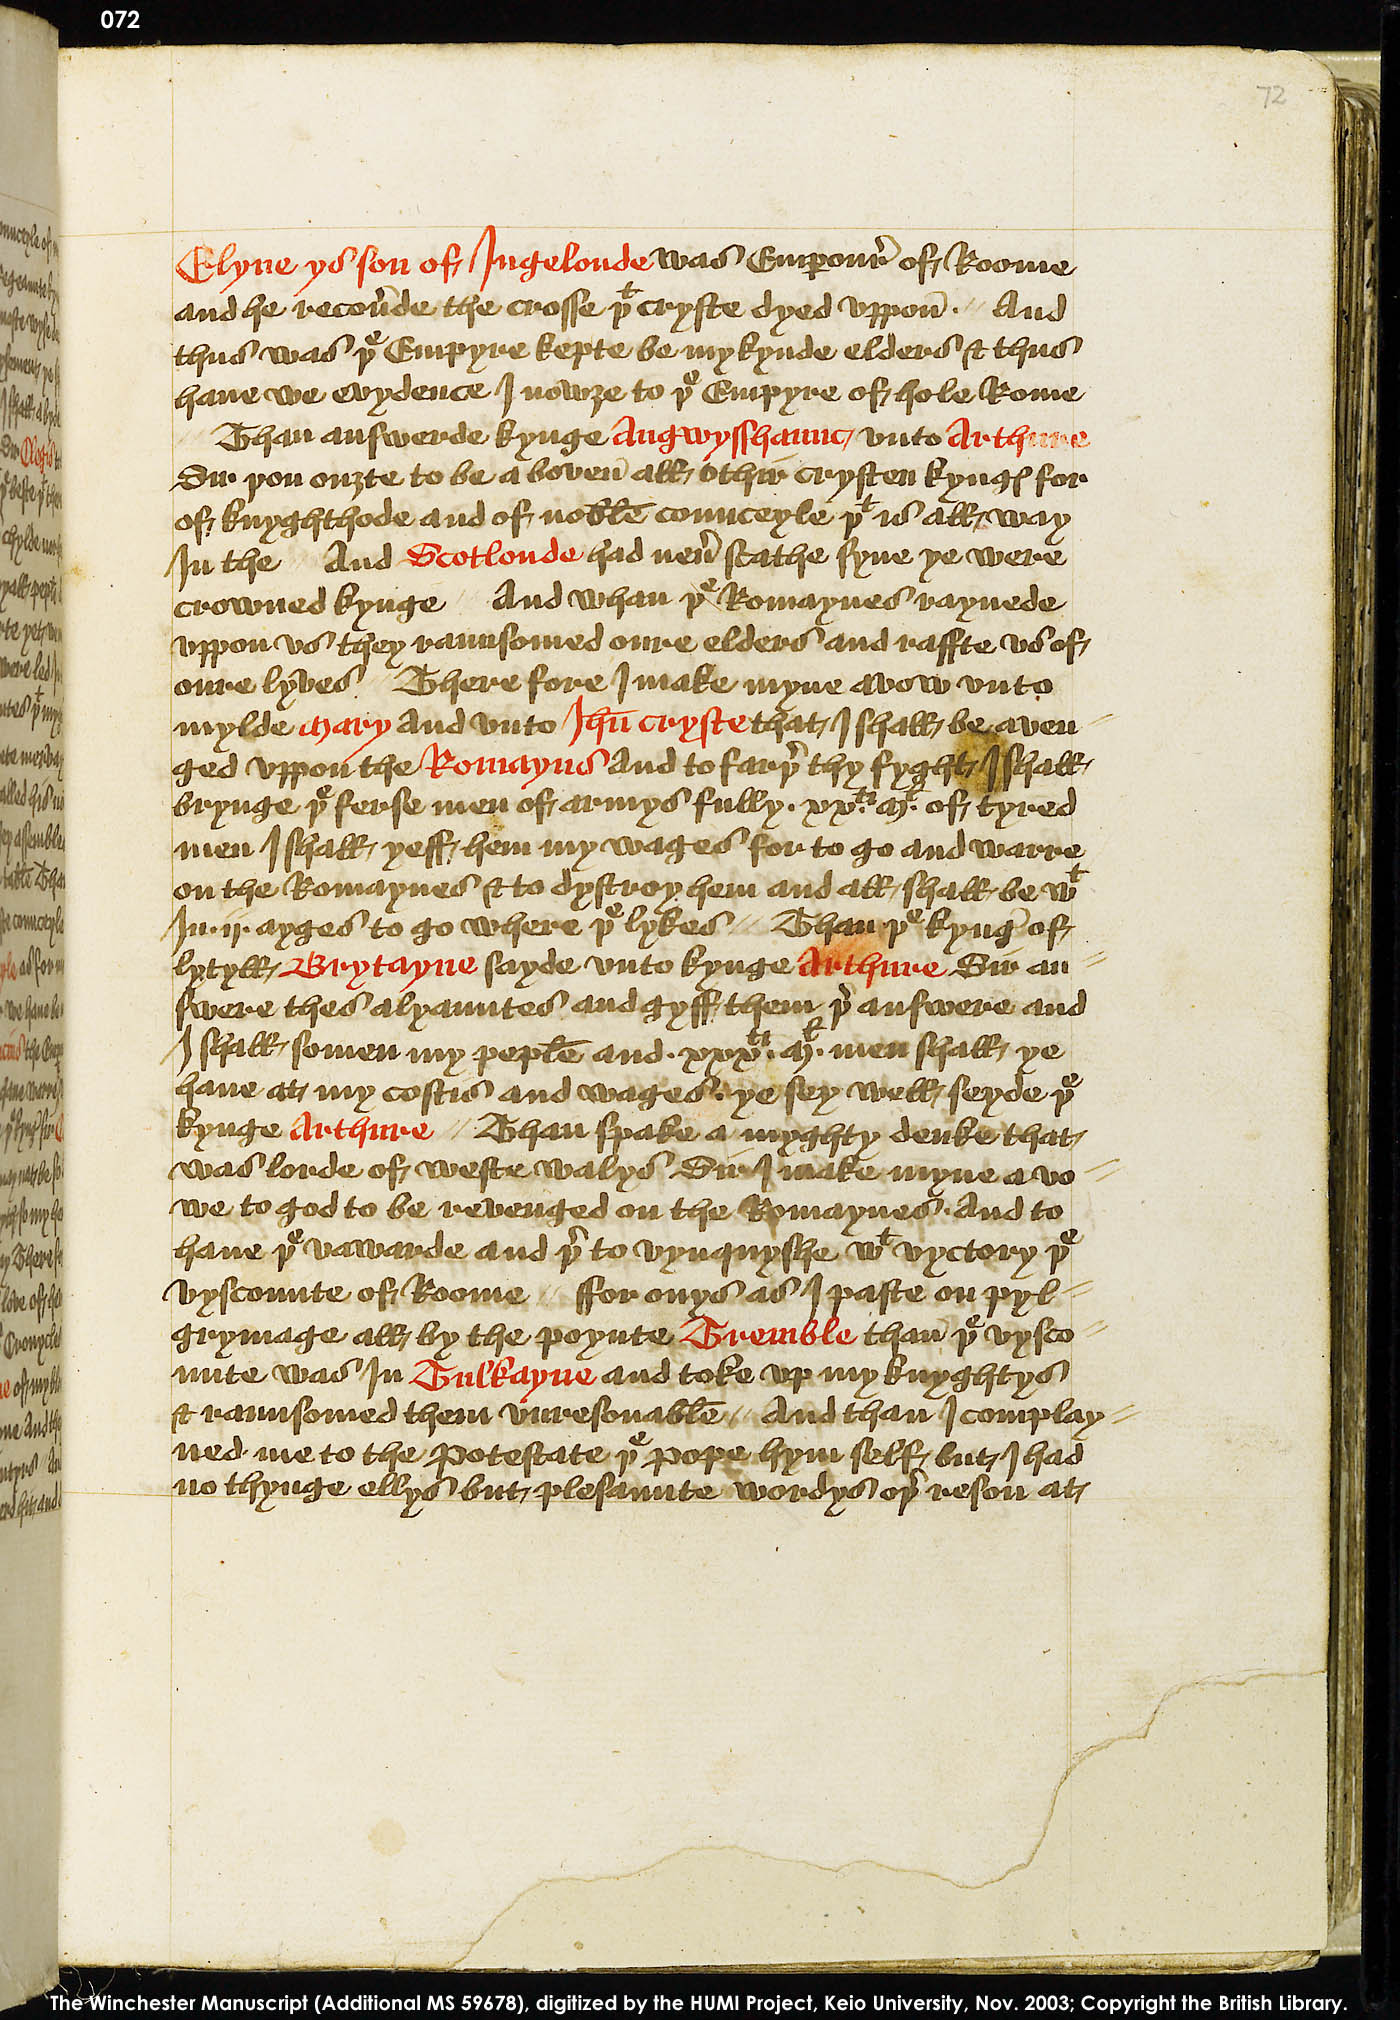 072
72
Elyne ys son of Ingelonde was Empour̉ of Roome
and he recoủde the crosse þͭ cryste dyed vppon̄ · // And
thus was þᵉ Empyre kepte be my kynde elders & thus
haue we evydence I nowȝe to þᵉ Empyre of hole Rome
// Than answerde kynge Angwysshaunc vnto Arthure
Sir þou ouȝte to be a boven̄ all othir crysten kyngꝭ for
of knyghthode and of noble counceyle þͭ is all way
In the // And Scotlonde had neủ scathe syne ye were
crowned kynge // And whan þᵉ Romaynes raynede
vppon vs they raunsomed oure elders and raffte vs of
oure lyves // There fore I make myne avow vnto
mylde Mary And vnto Ihū cryste that I shall be aven //
ged vppon the Romayns And to farþ̉ thy fyght I shall
brynge þᵉ ferse men of armys fully · xxᵗⁱ · Mͭ · of tyred
men I shall yeff hem my wages for to go and warre
on the Romaynes & to dystroy hem and all shall be wͭ
In · ij · ayges to go where þᵉ lykes // Than þᵉ kyng̉ of
lytyll Brytayne sayde vnto kynge Arthure Sir an //
swere thes alyauntes and gyff them þ̉ answere and
I shall somen my peple and · xxxᵗⁱ · Mͭ · men shall ye
haue at my costis and wages · ye sey well seyde þᵉ
kynge Arthure // Than spake a myghty deuke that
was lorde of weste walys Sir I make myne a vo //
we to god to be revenged on the Romaynes · And to
haue þᵉ vawarde and þ̉ to vynquyshe wͭ vyctory þᵉ
vyscounte of Roome // ffor onys as I paste on pyl //
grymage all by the poynte Tremble than þᵉ vysco //
unte was In Tuskayne and toke vp my knyghtys
& raunsomed them vnresonable // And than I complay //
ned me to the Potestate þᵉ Pope hym self but I had
no thynge ellys but plesaunte wordys oþ̉ reson at
The Winchester Manuscript (Additional MS 59678), digitized by the HUMI Project, Keio University, Nov. 2003; Copyright the British Library.